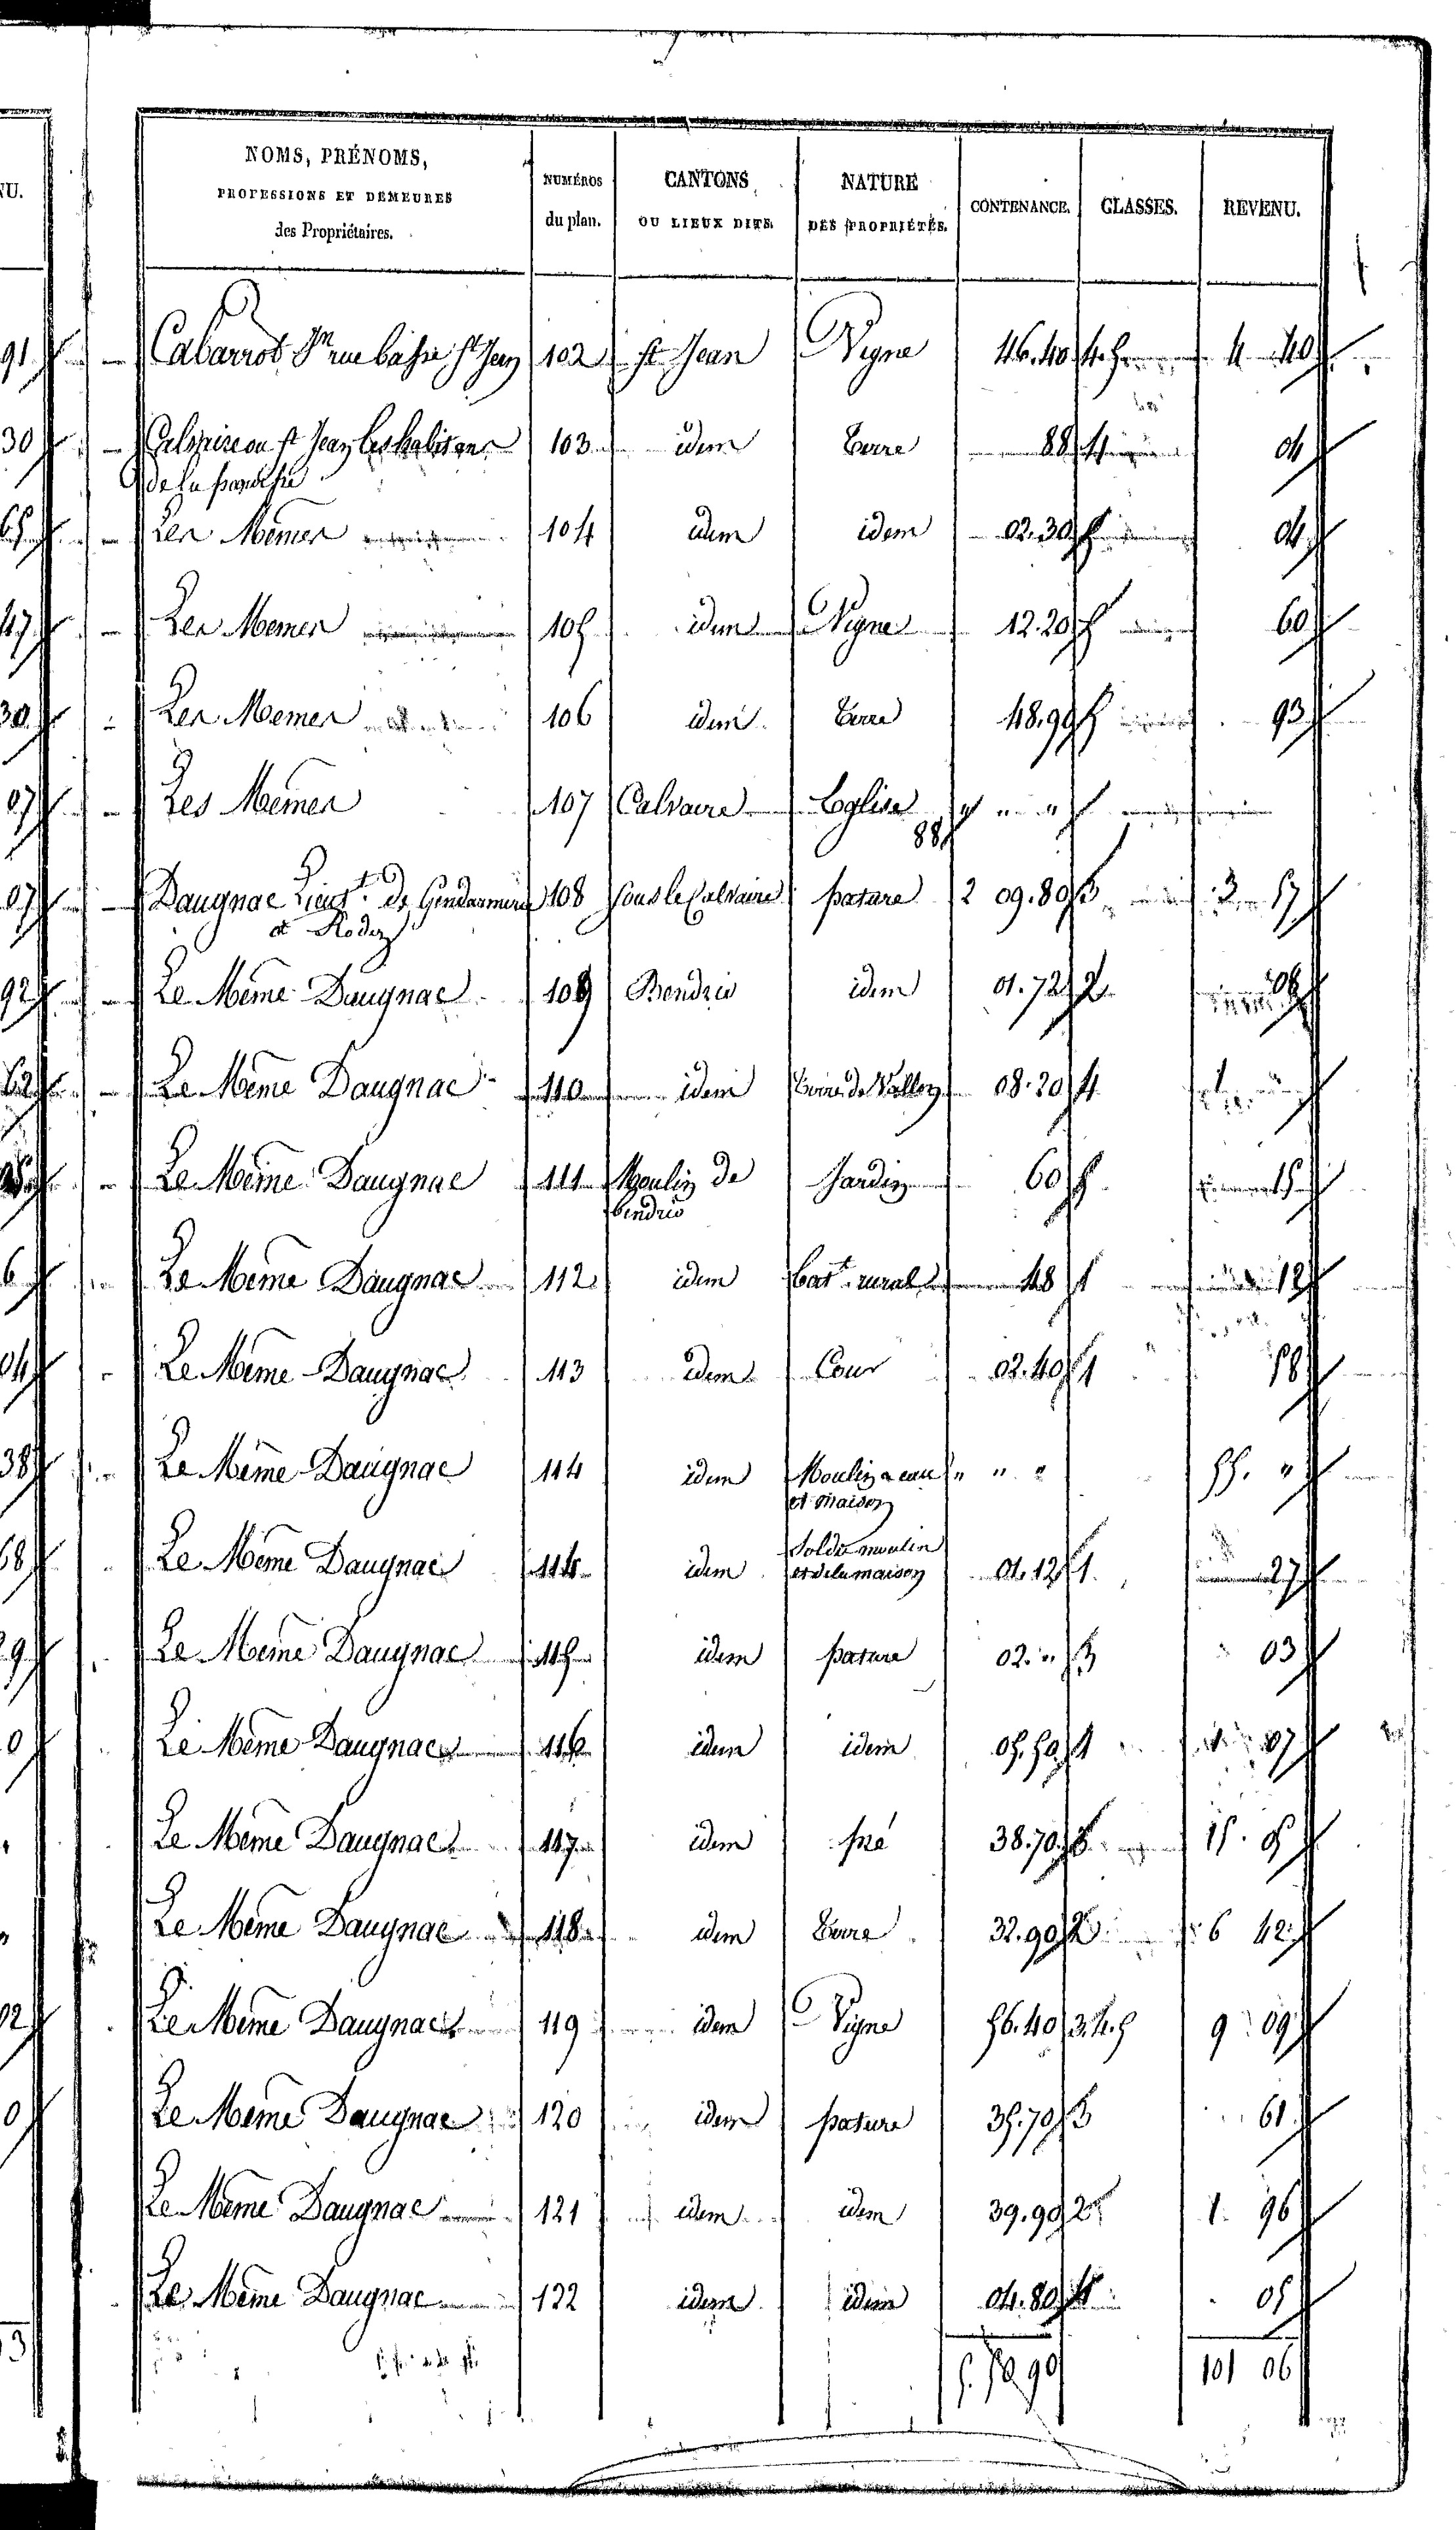 NOMS, PRÉNOMS,
PROFESSIONS ET DEMEURES
des Propriétaires.
NUMÉROS
du plan.
CANTONS
OU LIEUX DITS.
NATURE
DES PROPRIÉTÉS.
CONTENANCE.
CLASSES.
REVENU.
Cabarrot Jn rue basse St Jean 102 St Jean Vigne 46.40 4.5 4 40
Calvaire ou St Jean les habitans 103 idem Terre 88 4 04
de la paroisse
Les Mêmes 104 idem idem 02.30 5 04
Les Mêmes 105 idem Vigne 12.20 5 60
Les Mêmes 106 idem Terre 48.90 5 93
Les Mêmes 107 Calvaire Eglise " " "
88
Daugnac Lieut. de Gendarmerie 108 Sous le Calvaire pature 2 09.80 3 3 57
à Rodez
Le Même Daugnac 109 Bendrio idem 01.72 2 08
Le Même Daugnac 110 idem Terre de Vallon 08.20 4 1
Le Même Daugnac 111 Moulin de Jardin 60 5 15
bendrio
Le Même Daugnac 112 idem bat. rural 48 1 12
Le Même Daugnac 113 idem Cour 02.40 1 58
Le Même Daugnac 114 idem Moulin a eau " " " 55. "
et maison
Le Même Daugnac 114 idem Sol du moulin
et de la maison 01.12 1 27
Le Même Daugnac 115 idem pature 02. " 3 03
Le Même Daugnac 116 idem idem 05.50 1 07
Le Même Daugnac 117 idem pré 38.70 15. 05
Le Même Daugnac 118 idem Terre 32.90 2 6 42
Le Même Daugnac 119 idem Vigne 56.40 3.4.5 9 09
Le Même Daugnac 120 idem pature 35.70 3 61
Le Même Daugnac 121 idem idem 39.90 2 1. 96
Le Même Daugnac 122 idem idem 04.80 4 05
5. 50 90 101 06